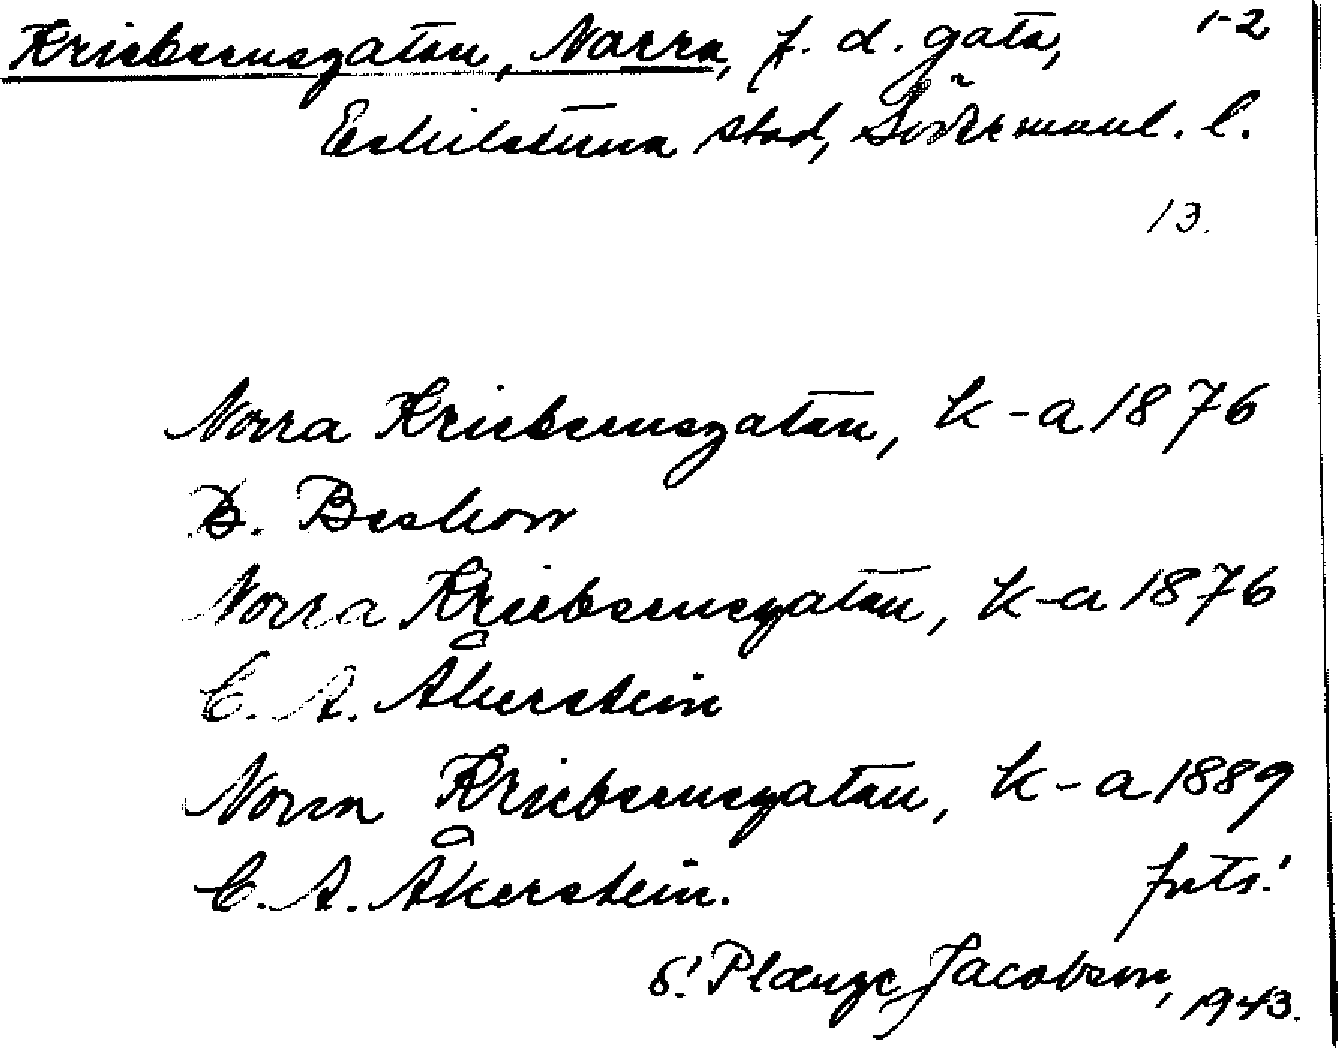 Kriebsensgatan, Norra, f. d. gata, 1-2
Eskilstuna stad, Södermanl. l.
13.
Norra Kriebsensgatan, k-a 1876
B. Beskow
Norra Kriebsensgatan, k-a 1876
C. A. Åkerstein
Norra Kriebsensgatan, k-a 1889
C. A. Åkerstein. forts!
S. Plænge Jacobson, 1943.